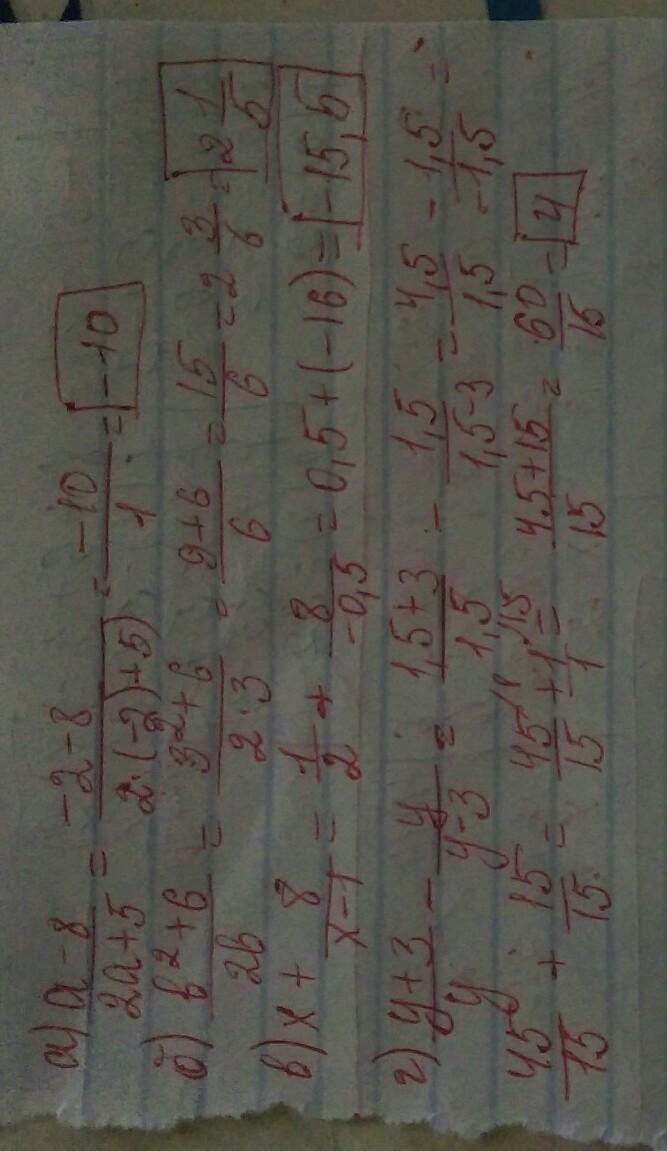 а) (a-8)/(2a+5) = (-2-8)/(2·(-2)+5) = (-10)/1 = -10
б) (b²+6)/(2b) = (3²+6)/(2·3) = (9+6)/6 = 15/6 = 2 3/6 = 2 1/5
в) x + 8/(x-1) = 1/2 + 8/(-0,5) = 0,5+(-16) = -15,5
г) (y+3)/y - y/(y-3) = (1,5+3)/1,5 - 1,5/(1,5-3) = 4,5/1,5 - 1,5/(-1,5) =
45/15 + 15/15 = 45/15 + 1/1 = (45+15)/15 = 60/15 = 4